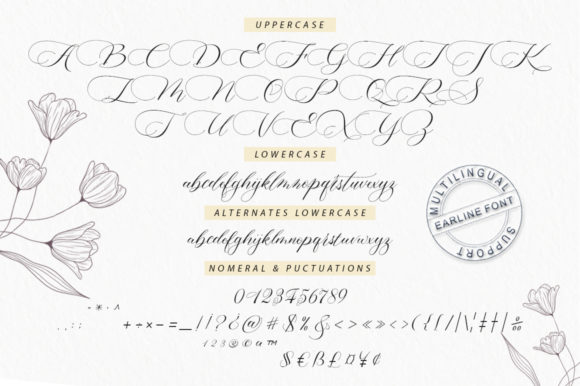 UPPERCASE
A B C D E F G H I J K
L M N O P Q R S
T U V W X Y Z
LOWERCASE
abcdefghijklmnopqrstuvwxyz
ALTERNATES LOWERCASE
abcdefghijklmnopqrstuvwxyz
NOMERAL & PUCTUATIONS
0123456789
+ ÷ × − = _ ¡ / ? ¿ @ # $ % & < > « » < > ( { [ / | \ ¦ † ‡ |
$ € B £ ¤ ¥ ¢
MULTILINGUAL
EARLINE FONT
SUPPORT